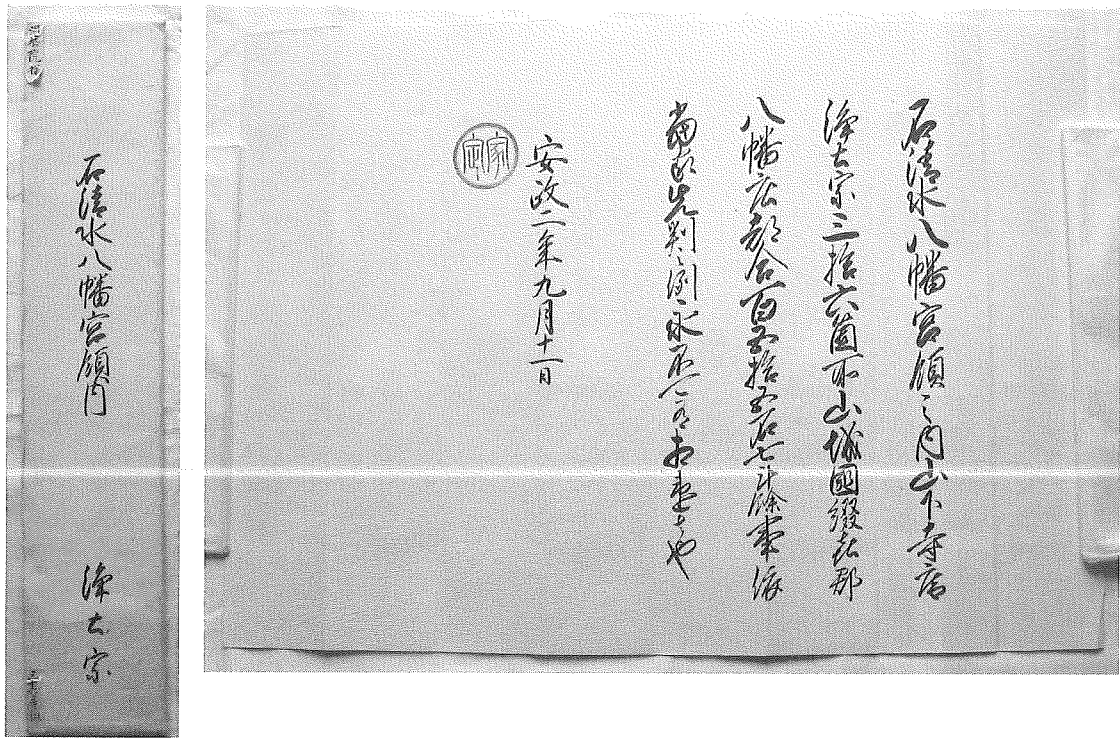 石清水八幡宮領之内山下寺庵
淨土宗三拾六箇所山城國綴喜郡
八幡庄都合百五拾五石七斗餘事依
當家先判之例永不可有相違者也
安政二年九月十一日
家定
石清水八幡宮領内
淨土宗